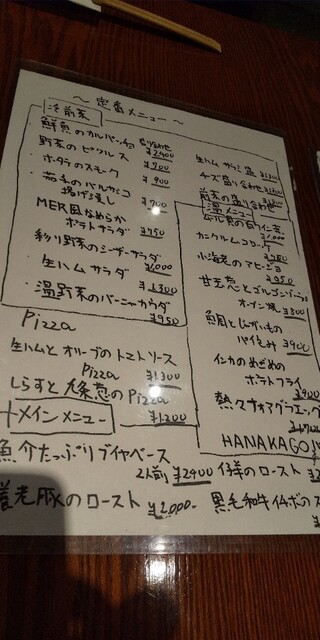 ～定番メニュー～
冷前菜
鮮魚のカルパッチョ 盛り合わせ
¥2,400
野菜のピクルス
¥700
ホタテのスモーク
¥900
茄子のバルサミコ
揚げ浸し
¥700
MER風なめらか
ポテトサラダ
¥750
彩り野菜のシーザーサラダ
¥1,000
生ハムサラダ
¥1,300
温野菜のバーニャカウダ
¥950
Pizza
生ハムとオリーブのトマトソース
Pizza ¥1,300
しらすと九条葱のPizza
¥1,200
メインメニュー
魚介たっぷりブイヤベース
2人前 ¥2400
養老豚のロースト
¥2,000-
チーズ盛り合わせ
前菜の盛り合わせ
温メニュー
カニクリームコロッケ
小海老のアヒージョ
¥950
甘王葱とゴルゴンゾーラ
オーブン焼
魚貝とじゃがいもの
パイ包み ¥900
インカのめざめの
ポテトフライ
熱々フォアグラエッグ
HANAKAGO
仔羊のロースト
黒毛和牛イチボのス